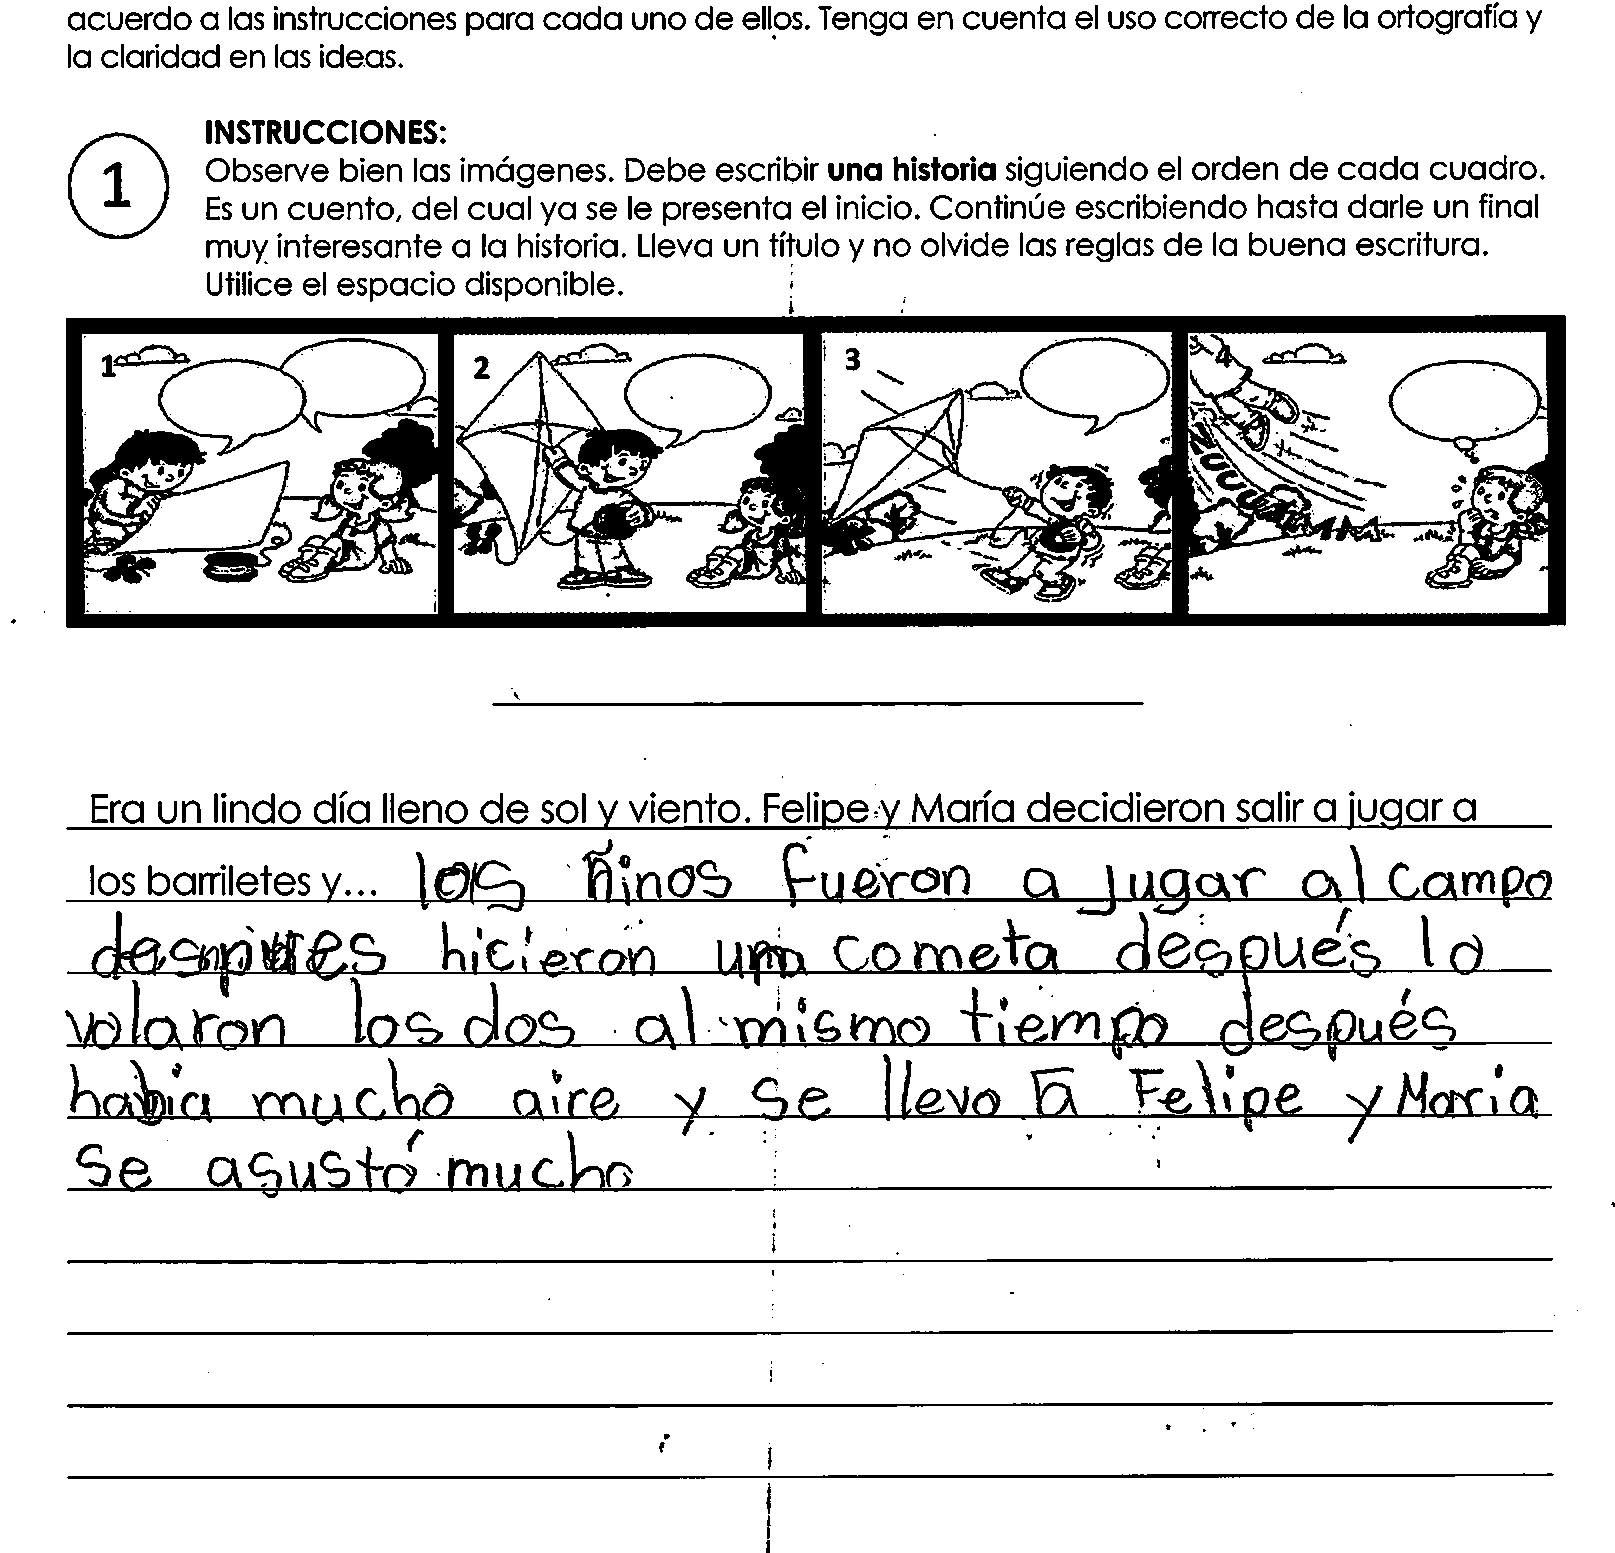 acuerdo a las instrucciones para cada uno de ellos. Tenga en cuenta el uso correcto de la ortografía y
la claridad en las ideas.
1
INSTRUCCIONES:
Observe bien las imágenes. Debe escribir una historia siguiendo el orden de cada cuadro.
Es un cuento, del cual ya se le presenta el inicio. Continúe escribiendo hasta darle un final
muy interesante a la historia. Lleva un título y no olvide las reglas de la buena escritura.
Utilice el espacio disponible.
1 2 3 4
Era un lindo día lleno de sol y viento. Felipe y María decidieron salir a jugar a
los barriletes y... los ñinos fueron a jugar al campo
despues hicieron una cometa después lo
volaron los dos al mismo tiempo después
habia mucho aire y se llevo a Felipe y Maria
se asustó mucho